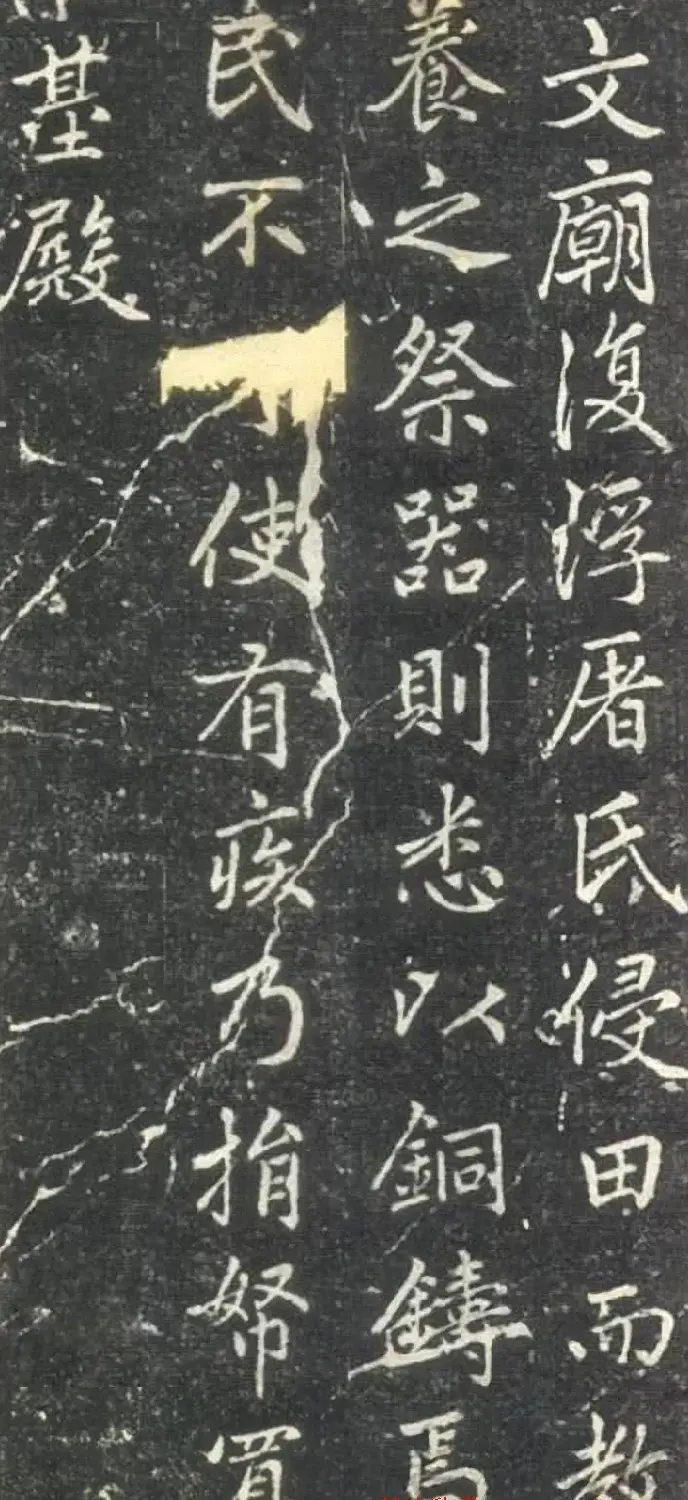 文廟復浮屠氏侵田而教
養之祭器則悉以銅鑄焉
民不使有疾乃捐帑買
基殿